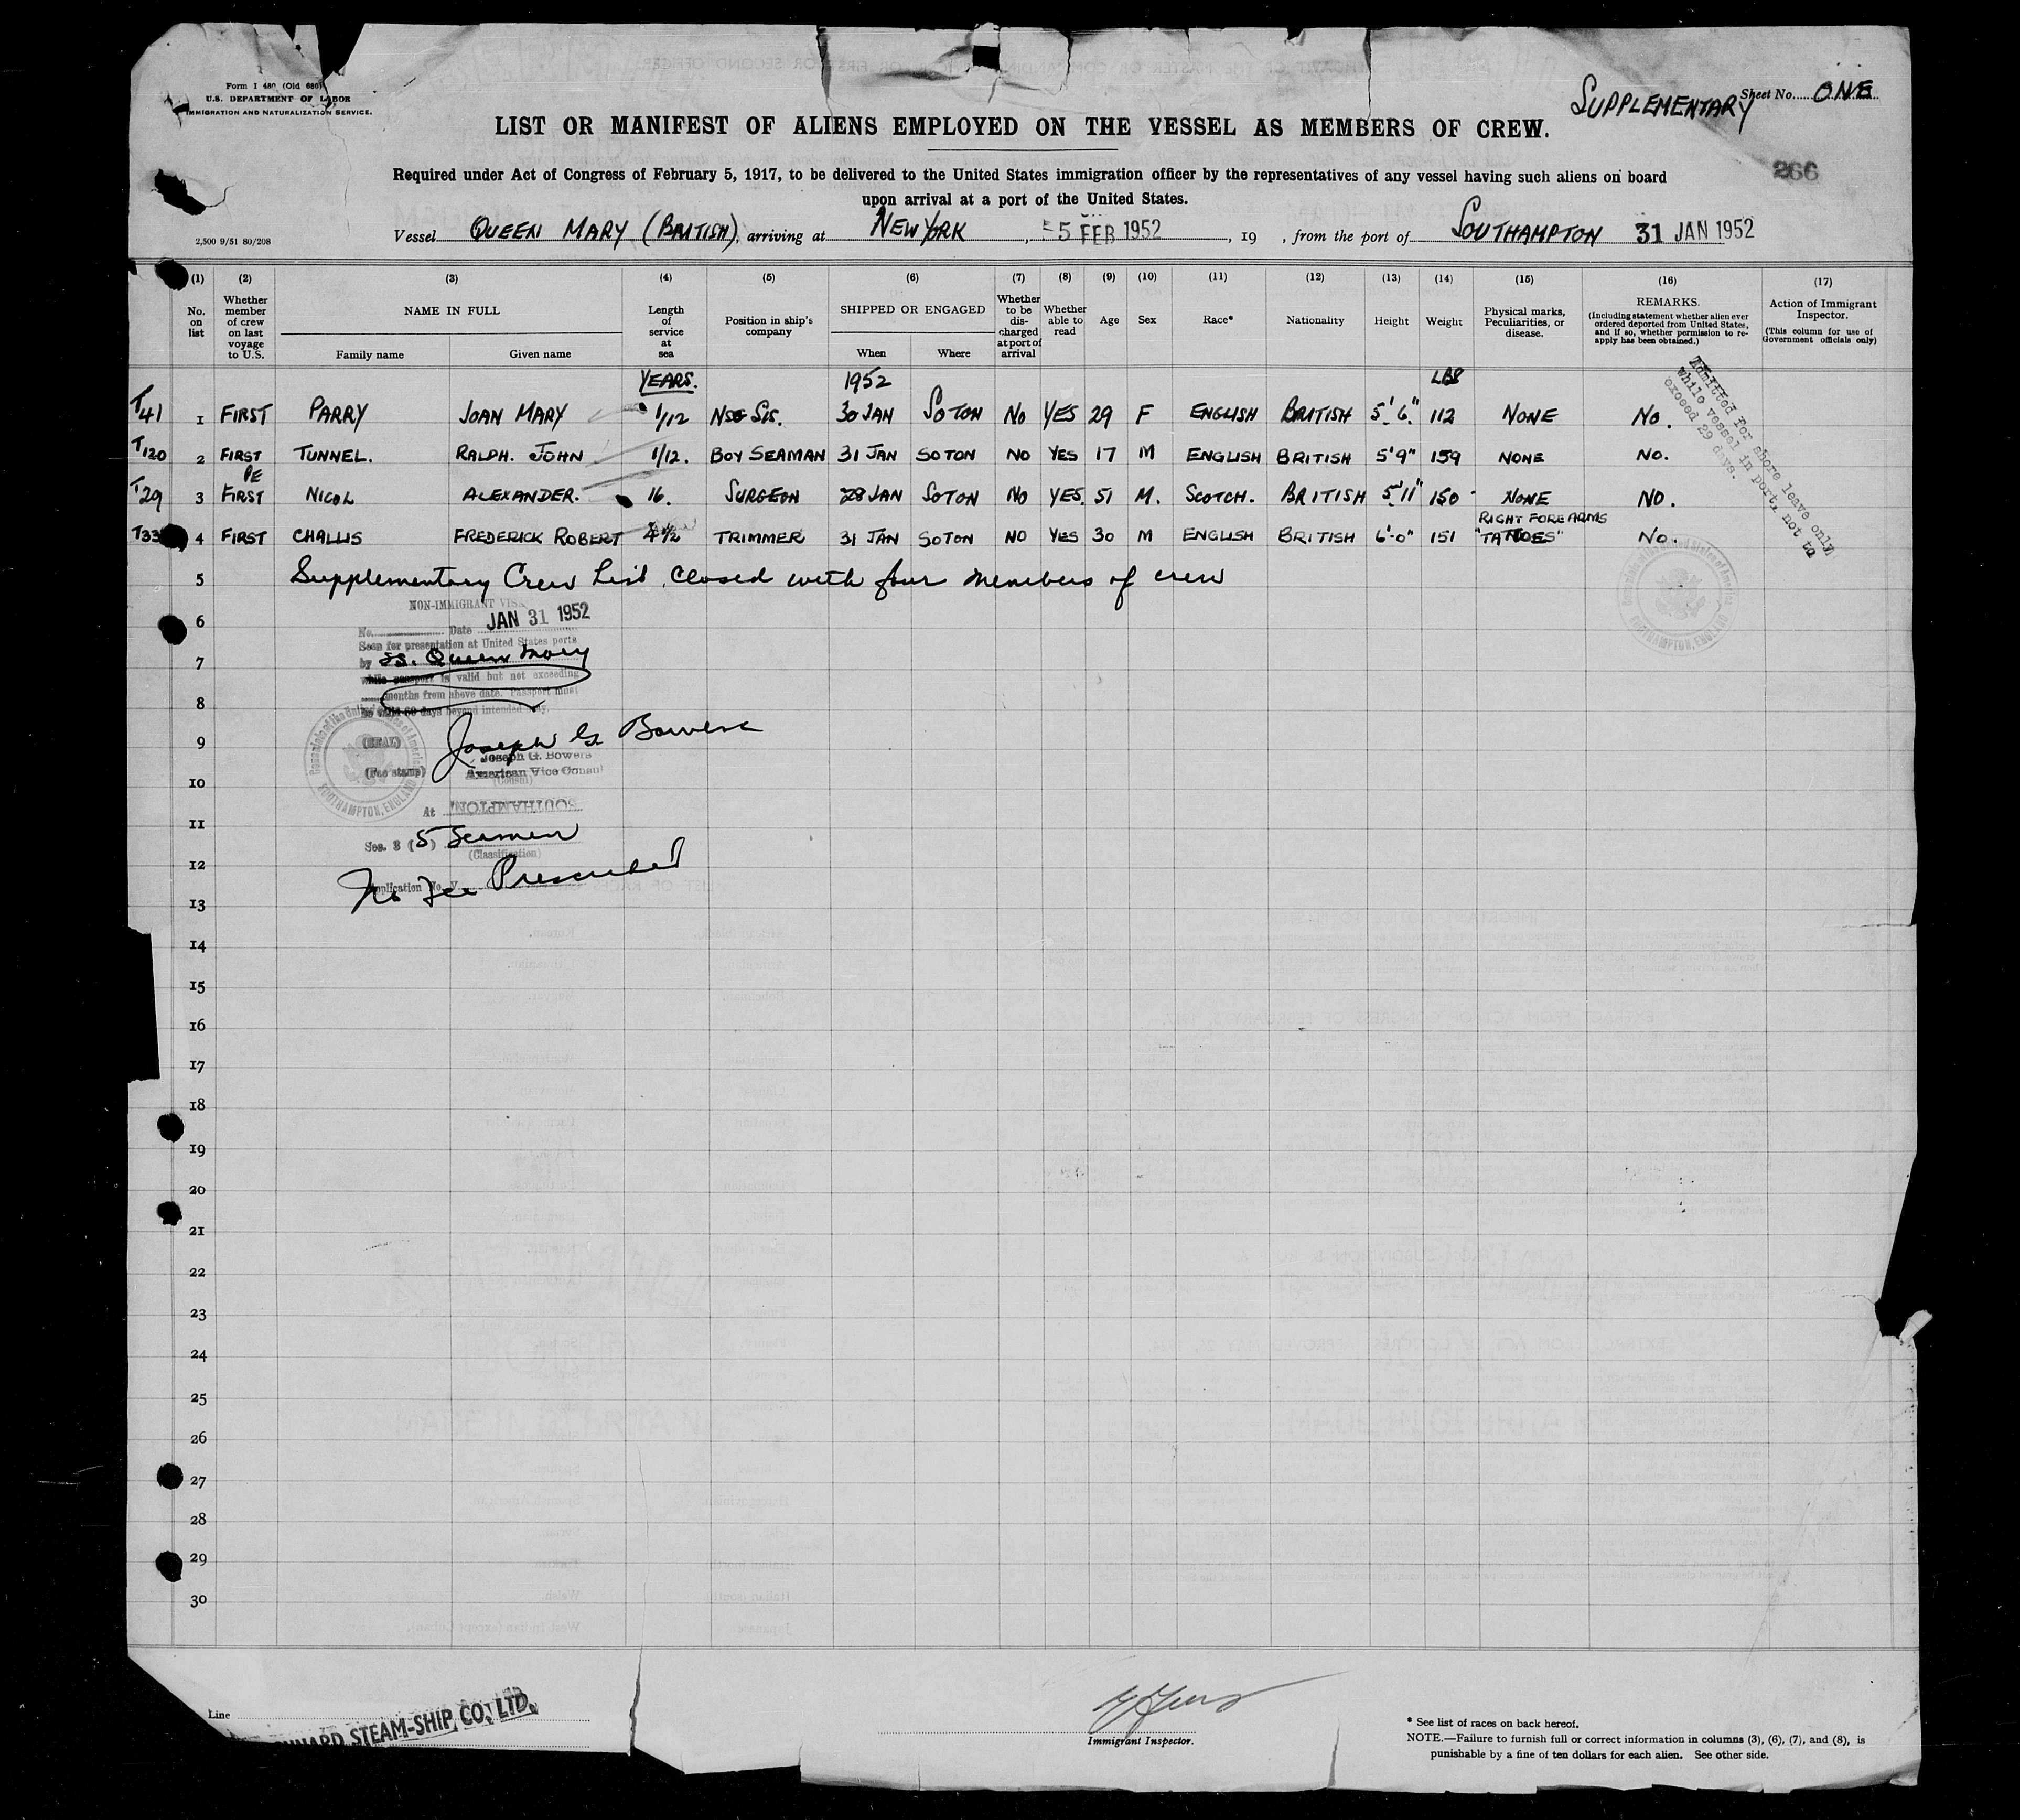 Form I 480 (Old 680)
U.S. DEPARTMENT OF LABOR
IMMIGRATION AND NATURALIZATION SERVICE.
SUPPLEMENTARY Sheet No. ONE
LIST OR MANIFEST OF ALIENS EMPLOYED ON THE VESSEL AS MEMBERS OF CREW.
266
Required under Act of Congress of February 5, 1917, to be delivered to the United States immigration officer by the representatives of any vessel having such aliens on board
upon arrival at a port of the United States.
2,500 9/51 80/208
Vessel QUEEN MARY (BRITISH), arriving at NEW YORK, 5 FEB 1952, 19 , from the port of SOUTHAMPTON 31 JAN 1952
(1) (2) (3) (4) (5) (6) (7) (8) (9) (10) (11) (12) (13) (14) (15) (16) (17)
No. on list
Whether member of crew on last voyage to U.S.
NAME IN FULL
Family name Given name
Length of service at sea
Position in ship's company
SHIPPED OR ENGAGED
When Where
Whether to be discharged at port of arrival
Whether able to read
Age
Sex
Race*
Nationality
Height
Weight
Physical marks, Peculiarities, or disease.
REMARKS.
(Including statement whether alien ever ordered deported from United States, and if so, whether permission to re-apply has been obtained.)
Action of Immigrant Inspector.
(This column for use of Government officials only)
YEARS. 1952 LBS
T41 1 FIRST PARRY JOAN MARY 1/12 NSG SIS. 30 JAN SOTON NO YES 29 F ENGLISH BRITISH 5' 6" 112 NONE NO.
T120 2 FIRST TUNNEL. RALPH. JOHN 1/12. BOY SEAMAN 31 JAN SOTON NO YES 17 M ENGLISH BRITISH 5'9" 159 NONE NO.
PE
T29 3 FIRST NICOL ALEXANDER. 16. SURGEON 28 JAN SOTON NO YES. 51 M. SCOTCH. BRITISH 5'11" 150 NONE NO.
RIGHT FOREARMS
T33 4 FIRST CHALLIS FREDERICK ROBERT 4½ TRIMMER 31 JAN SOTON NO YES 30 M ENGLISH BRITISH 6'-0" 151 "TATTOES" NO.
Admitted for shore leave only
while vessel in port, not to
exceed 29 days.
5 Supplementary Crew List closed with four members of crew
NON-IMMIGRANT VISA
No. Date JAN 31 1952
6
Seen for presentation at United States ports
by SS. Queen Mary
7
while passport is valid but not exceeding
months from above date. Passport must
8
be valid 60 days beyond intended stay.
9
(SEAL) Joseph G. Bowers
Joseph G. Bowers
(Fee stamp) American Vice Consul
(Consul)
10
SOUTHAMPTON, ENGLAND
At SOUTHAMPTON
11
Sec. 3 (5) Seamen
(Classification)
12
Application No. V
No Fee Prescribed
13
14
15
16
17
18
19
20
21
22
23
24
25
26
27
28
29
30
SOUTHAMPTON, ENGLAND
Line CUNARD STEAM-SHIP CO. LTD.
Immigrant Inspector.
* See list of races on back hereof.
NOTE.—Failure to furnish full or correct information in columns (3), (6), (7), and (8), is
punishable by a fine of ten dollars for each alien. See other side.